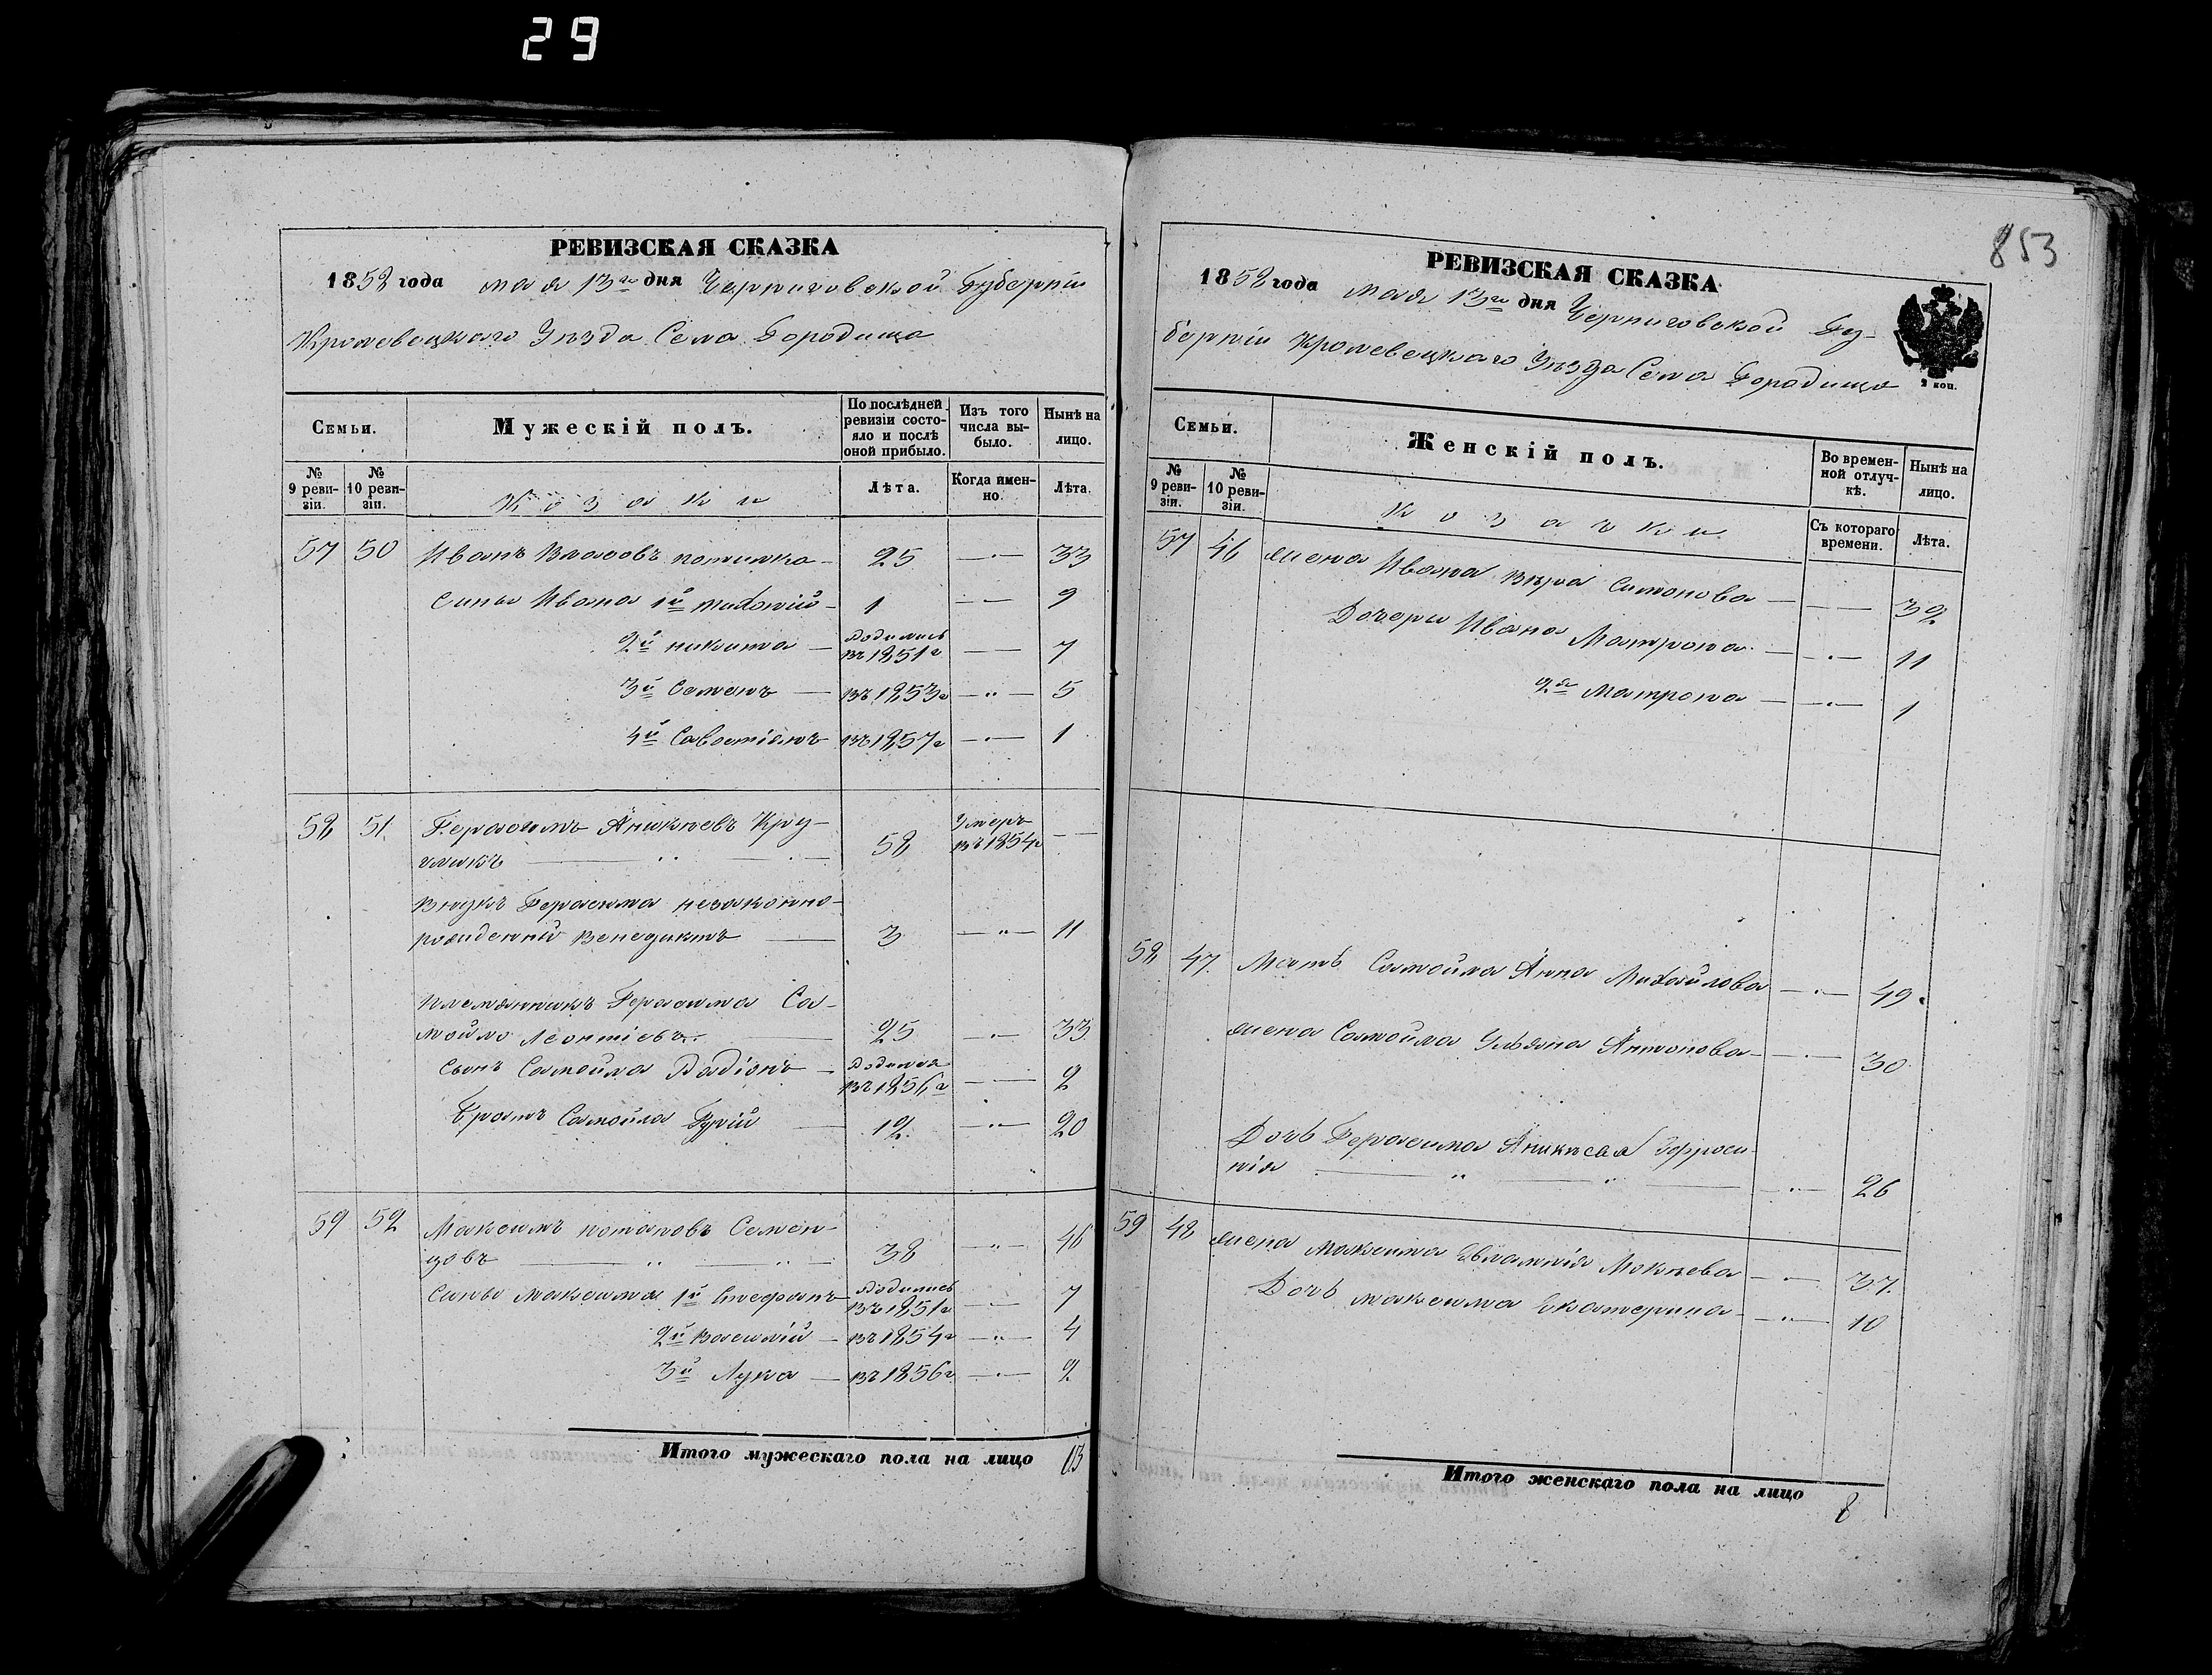 29
РЕВИЗСКАЯ СКАЗКА
1858 года мая 13го дня Черниговской Губерніи
Кролевецкаго Уѣзда Села Городища
Семьи.
Мужескій полъ.
По послѣдней ревизіи состояло и послѣ оной прибыло.
Изъ того числа выбыло.
Нынѣ на лицо.
№ 9 ревизіи.
№ 10 ревизіи.
Козаки
Лѣта.
Когда именно.
Лѣта.
57 50 Иванъ Власовъ 25 — 33
Сыны Ивана 1й 1 — 9
2й никита — родились въ 1851г — 7
3й Семенъ — въ 1853г — " — 5
4й Савостіянъ въ 1857г — 1
58 51. Герасимъ Аникѣевъ Кру-
58 Умеръ въ 1854г —
внукъ Герасима незаконно-
рожденный Венедиктъ — 3 — " — 11
племянникъ Герасима Са-
мойло Леонтіевъ — 25 — " — 33
сынъ Самойла Радіонъ — родился въ 1856г — 2
Братъ Самойла Гурій — 12 — " — 20
59 52 Максимъ потаповъ Семен-
цовъ — " — " — 38 — " — 46
Сыны максима 1й Стефанъ родились въ 1851г — 7
2й василій — въ 1854г — " — 4
3й Лука — въ 1856г — 2
Итого мужескаго пола на лицо 13
853
РЕВИЗСКАЯ СКАЗКА
1858 года мая 13го дня Черниговской Гу-
берніи Кролевецкаго Уѣзда Села Городища
2 коп.
Семьи.
Женскій полъ.
Во временной отлучкѣ.
Нынѣ на лицо.
№ 9 ревизіи.
№ 10 ревизіи.
Козачки
Съ котораго времени.
Лѣта.
57 46 жена Ивана вѣра Симонова — — 32
Дочери Ивана Матрона — " — 11
2я матрона — " — 1
58 47. Мать Самойла Анна Михайлова — " — 49.
жена Самойла Ульяна Антонова — " — 30
Дочь Герасима Ефроси-
нія — " — " — 26
59 48 жена максима Евлампія Мокѣева — " — 37.
Дочь максима Екатерина — " — 10
Итого женскаго пола на лицо 8